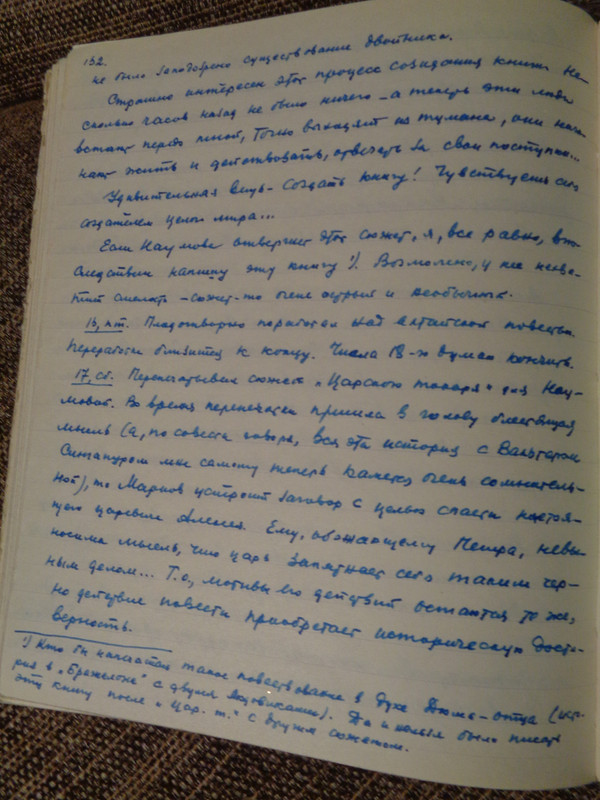 132.
не было заподозрено существование двойника.
Страшно интересен этот процесс созидания книги. Не-
сколько часов назад не было ничего – а теперь эти люди
встают передо мной, точно выходят из тумана, они начи-
нают жить и действовать, отвечать за свои поступки...
Удивительная вещь – создать книгу! Чувствуешь себя
создателем целого мира...
Если Наумова отвергнет этот сюжет, я, все равно, впо-
следствии напишу эту книгу ¹). Возможно, у нее нехва-
тит смелости – сюжет-то очень острый и необычный.
16, пт. Плодотворно поработал над алтайской повестью.
Переработка близится к концу. Числа 18-го думаю кончить.
17, сб. Перепечатывал сюжет „Царского токаря“ для Нау-
мовой. Во время перепечатки пришла в голову блестящая
мысль (а, по совести говоря, вся эта история с
Сингапуром мне самому теперь кажется очень сомнитель-
ной), что Марков устроит заговор с целью спасти настоя-
щего царевича Алексея. Ему, обожающему Петра, невы-
носима мысль, что царь запятнает себя таким чер-
ным делом... Т.о., мотивы его действий остаются те же,
но действие повести приобретает историческую досто-
верность.
¹) Кто бы напечатал такое повествование в духе Дюма-отца (исто-
рия в „Бражелоне“ с двумя Людовиками). Да и нельзя было писать
эту книгу после „Цар. т.“ с другим сюжетом.